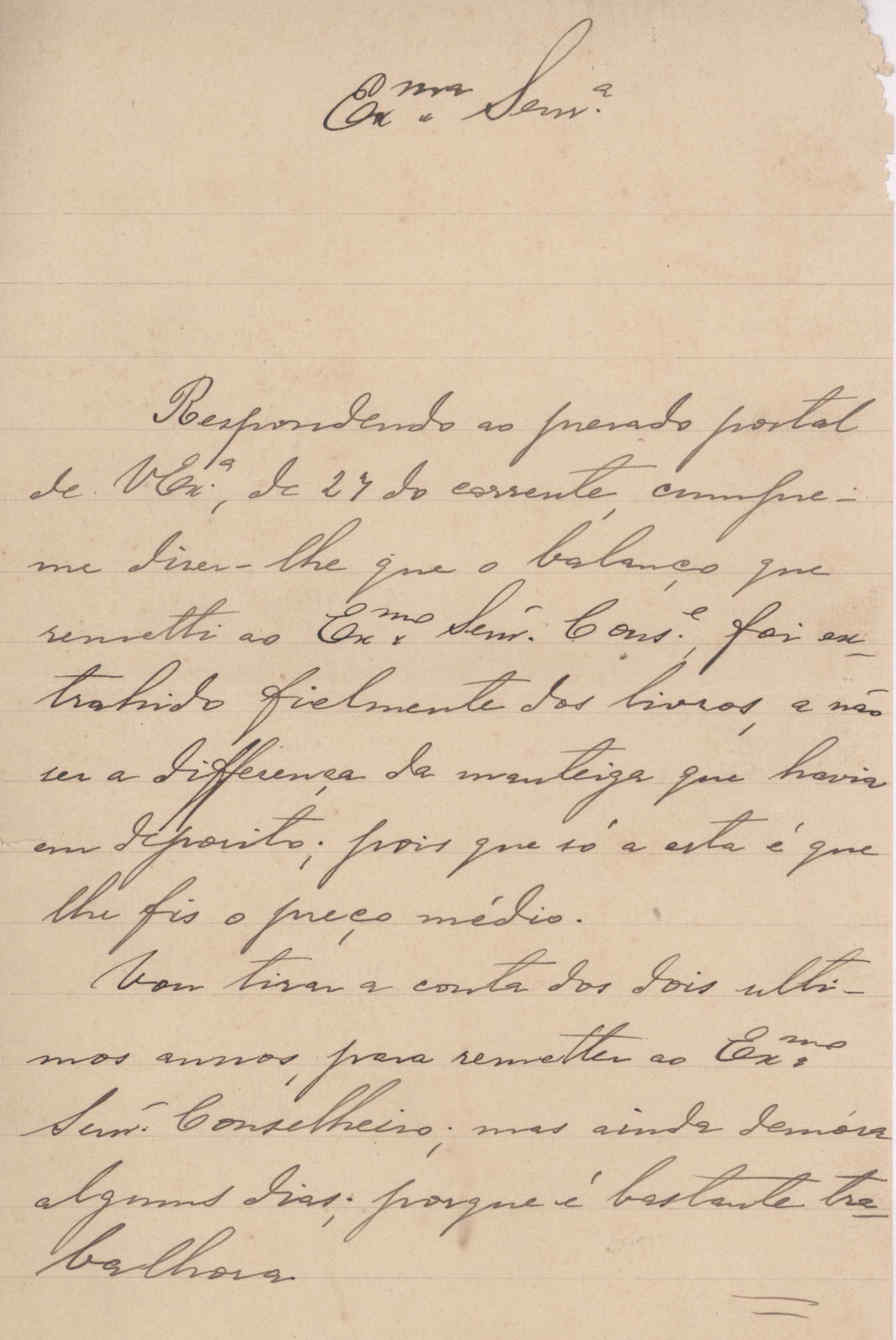 Exma. Senra.
Respondendo ao presado postal
de VExa., de 27 do corrente, cumpre-
me diser-lhe que o balanço que
remetti ao Exmo. Senr. Conse., foi ex-
trahido fielmente dos livros, a não
ser a differença da manteiga que havia
em deposito; pois que só a esta é que
lhe fis o preço médio.
Vou tirar a conta dos dois ulti-
mos annos, para remetter ao Exmo.
Senr. Conselheiro; mas ainda demóra
alguns dias; porque é bastante tra-
balhosa